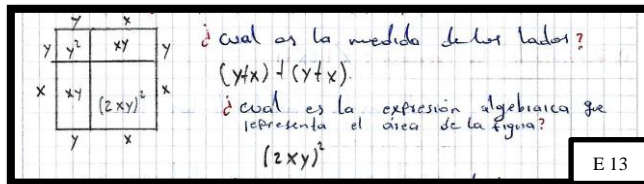 y x
y y² xy y
x xy (2xy)² x
y x
¿cual es la medida de los lados?
(y+x) + (y+x).
¿cual es la expresión algebraica que
representa el área de la figura?
(2xy)²
E 13